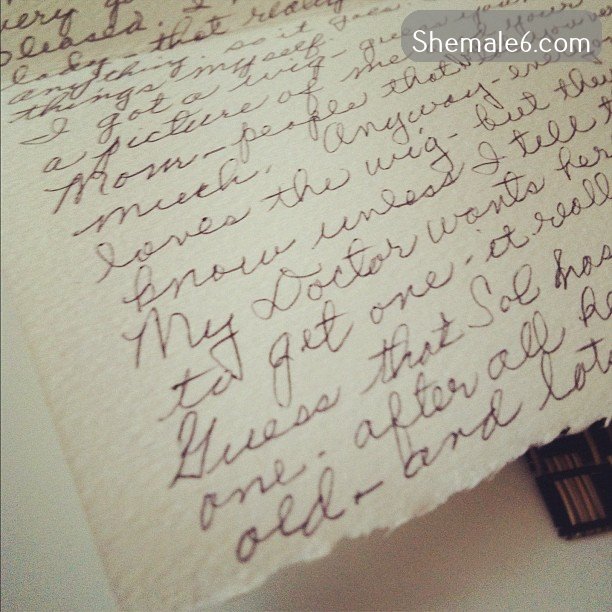 Shemale6.com
very
pleased. I
lady - that really
anything, so it goes
things myself.
I got a wig - guess you
a picture of me & your
Mom - people that
much. Anyway - every
loves the wig - but they
know unless I tell
My Doctor wants her
to get one - it really
Guess that Sol has
one - after all he
old - and lots